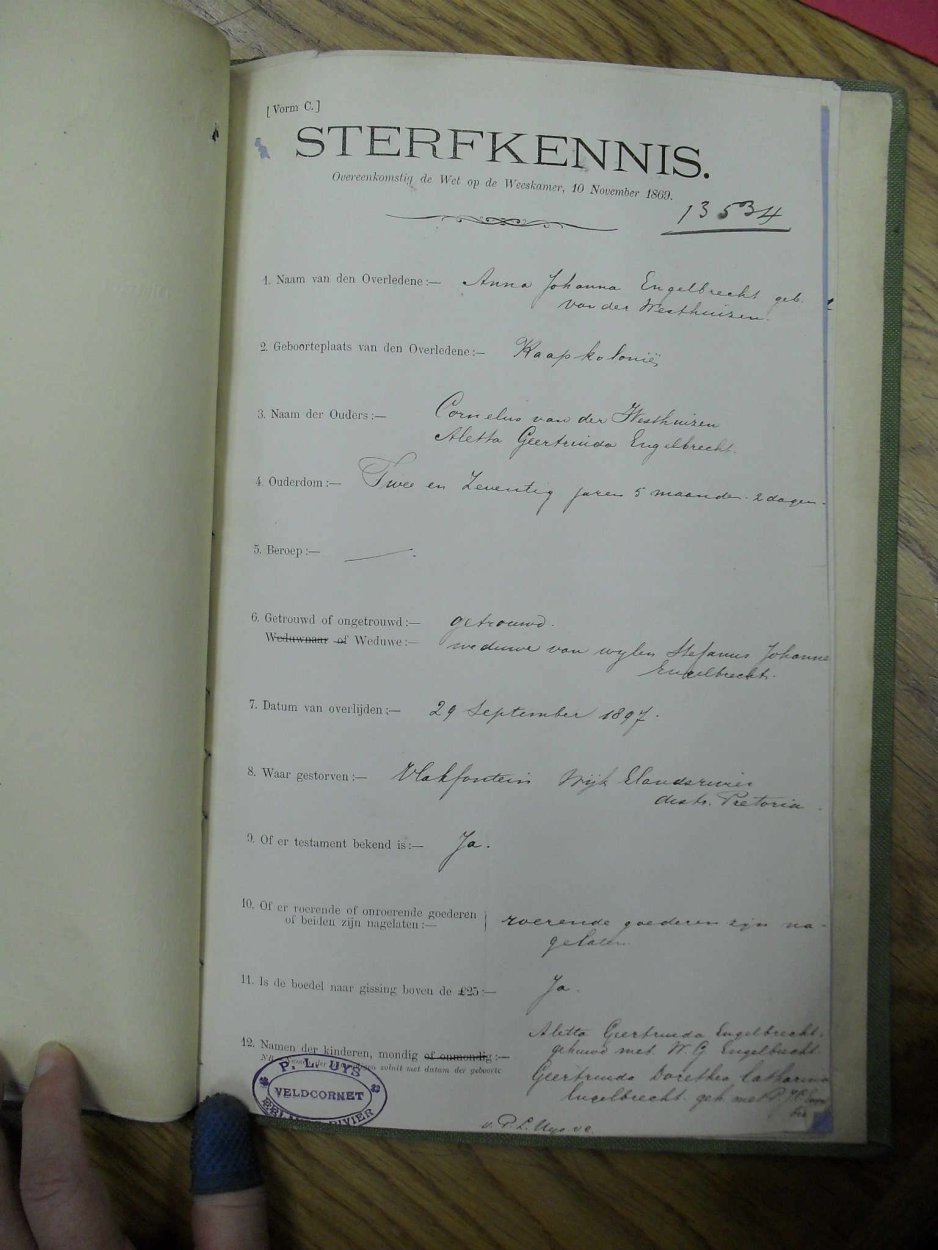 [Vorm C.]
STERFKENNIS.
Overeenkomstig de Wet op de Weeskamer, 10 November 1869.
13534
1. Naam van den Overledene:— Anna Johanna Engelbrecht geb.
van der Westhuizen.
2. Geboorteplaats van den Overledene:— Kaapkolonië
3. Naam der Ouders:— Cornelus van der Westhuizen
Aletta Geertruida Engelbrecht.
4. Ouderdom:— Twee en Zeventig jaren 5 maanden 2 dagen.
5. Beroep:—
6. Getrouwd of ongetrouwd:— getrouwd.
Weduwnaar of Weduwe:— weduwe van wylen Stefanus Johannes
Engelbrecht.
7. Datum van overlijden:— 29 September 1897.
8. Waar gestorven:— Vlakfontein Wijk Elandsrivier
distr. Pretoria.
9. Of er testament bekend is:— Ja.
10. Of er roerende of onroerende goederen
of beiden zijn nagelaten:— roerende goederen zijn na-
gelaten.
11. Is de boedel naar gissing boven de £25:— Ja.
12. Namen der kinderen, mondig of onmondig:— Aletta Geertruida Engelbrecht.
gehuwd met W. G. Engelbrecht.
voluit met datum der geboorte
Geertruida Dorothea Catharina
Engelbrecht geh. met
P. L. UYS
VELDCORNET
P. L. Uys vc